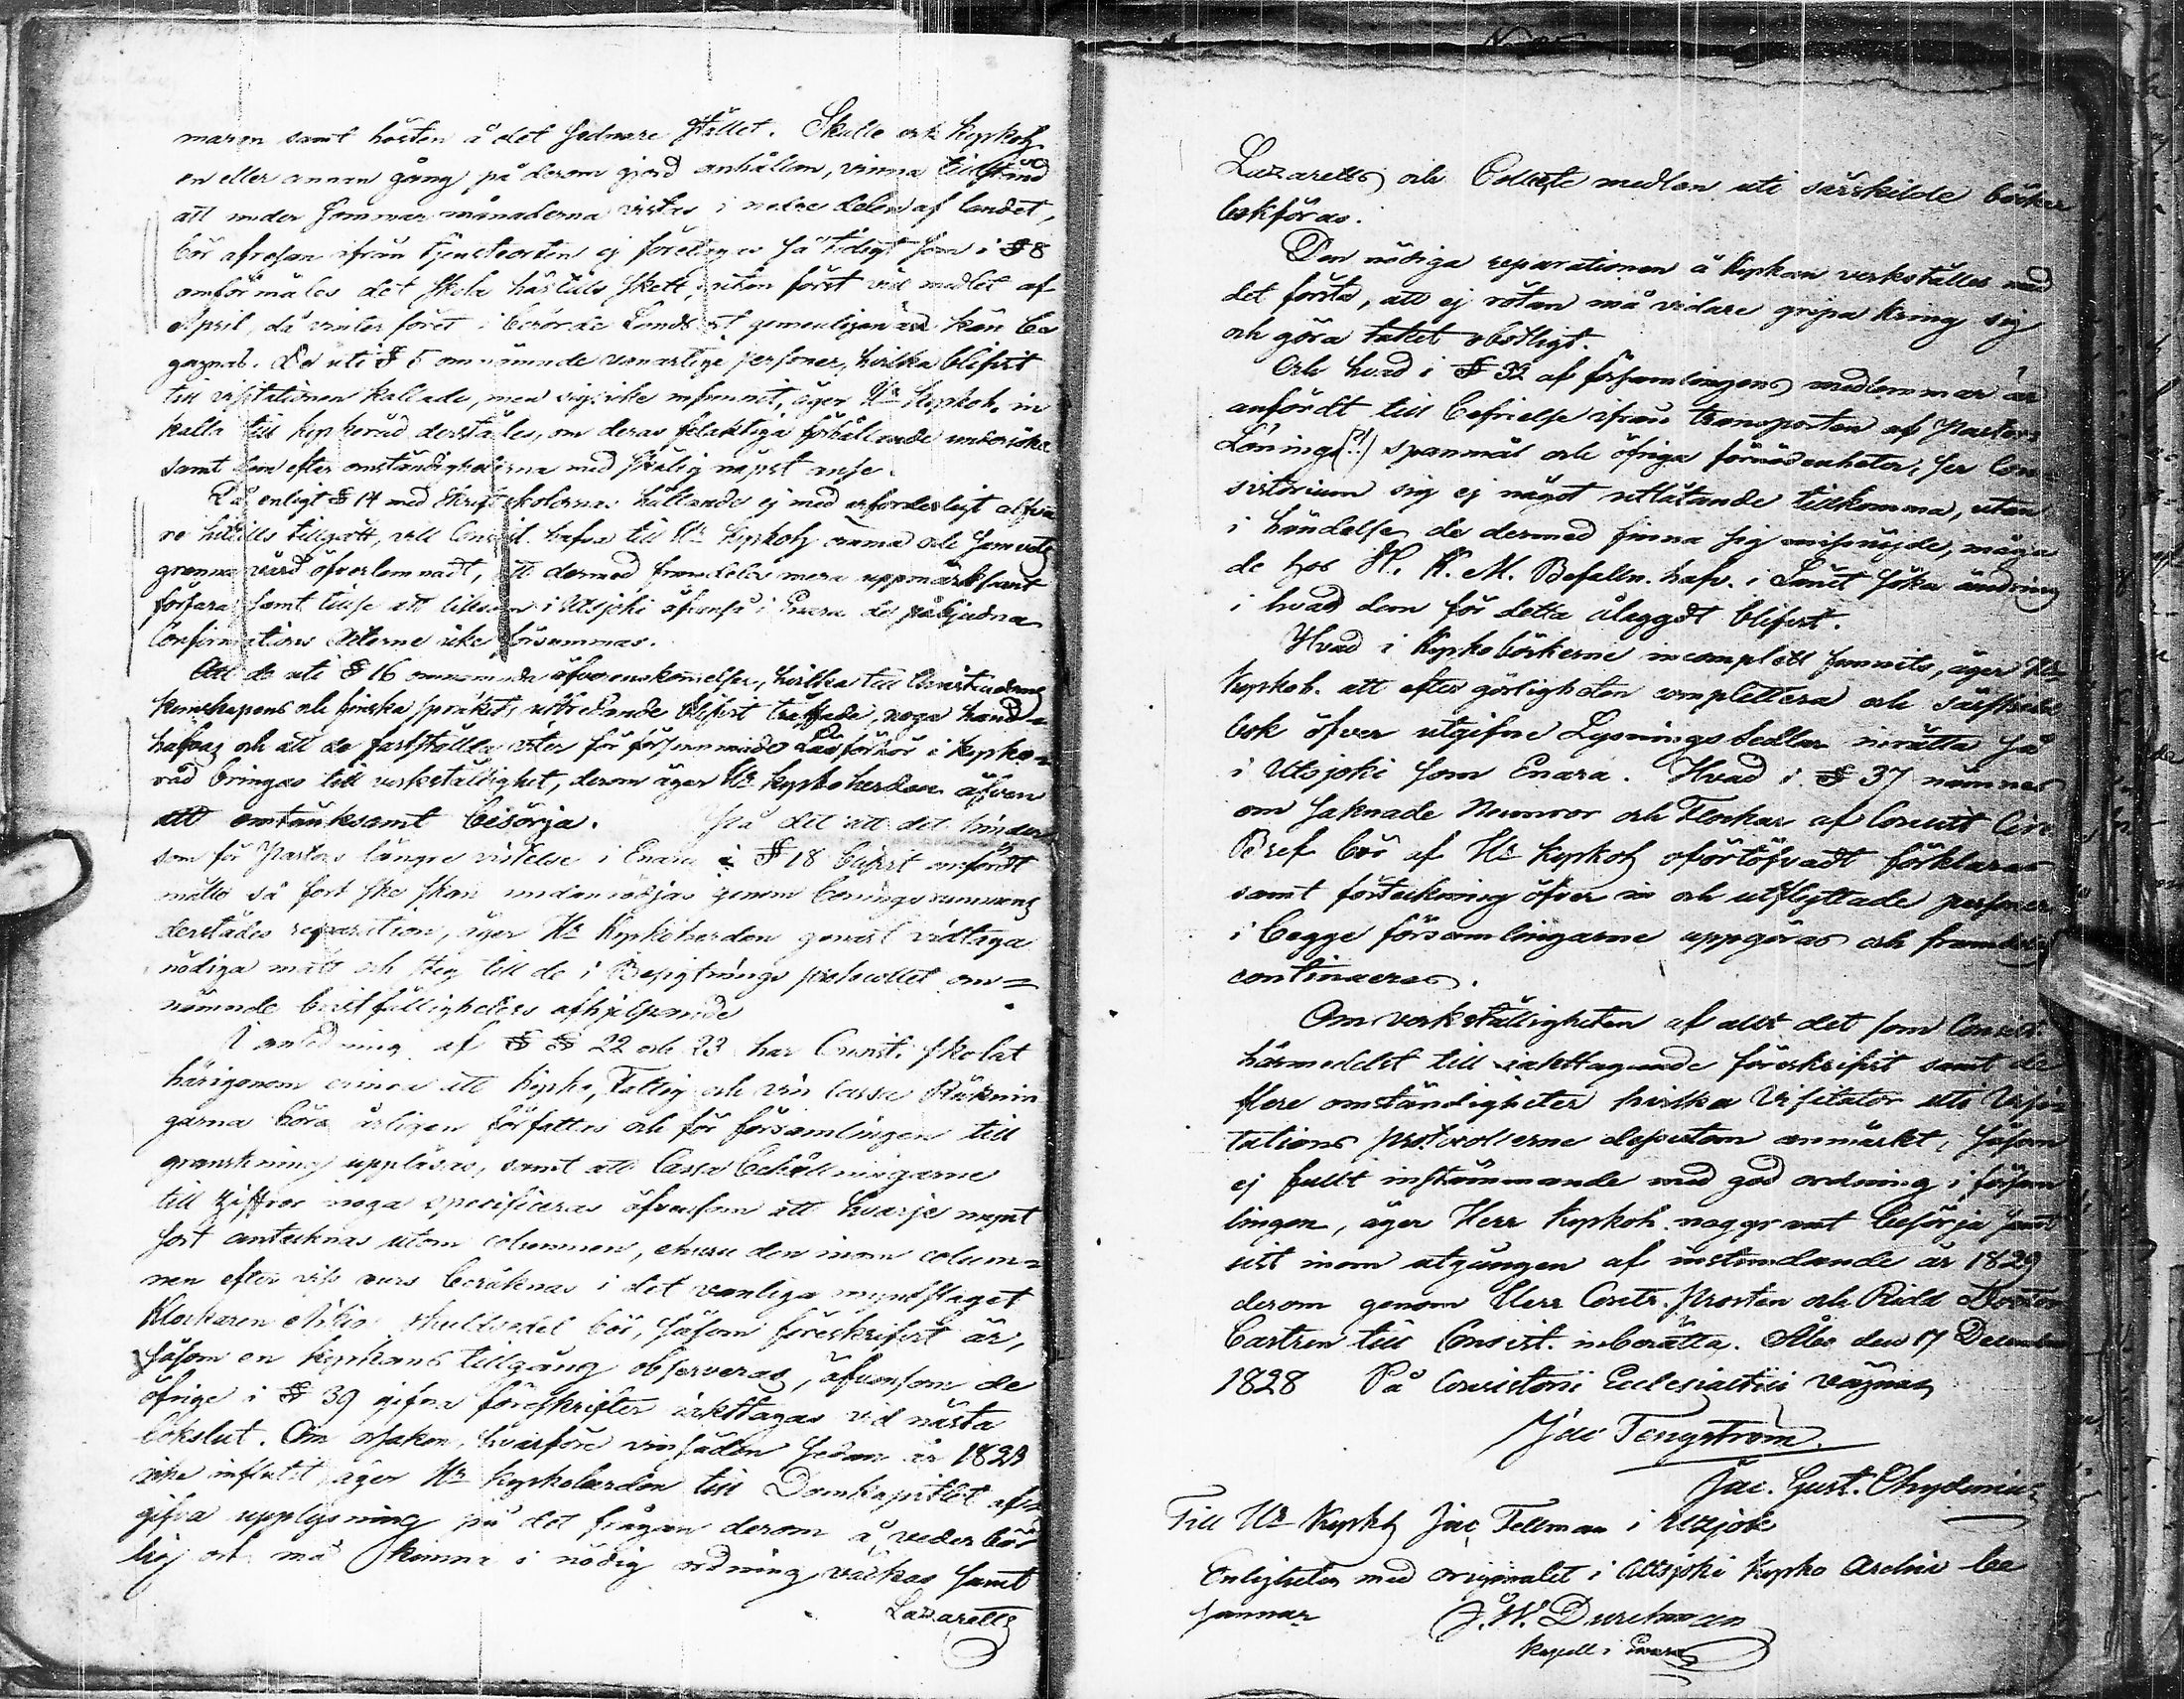 maren samt hösten å det sednare stället. Skulle ock Kyrkoh.
en eller annan gång på derom gjord anhållan, vinna tillstånd
att under sommar månaderna vistas i nedre delen af landet,
bör afresan ifrån tjensteorten ej företagas så tidigt som i § 8
omförmäles det skola härtills skett, utan först vid medlet af
April, då vinterföret i berörde Landsort gemenligen än kan be
gagnas. De uti § 5 omnämnde vanartige personer, hvilka blifvit
till visitationen kallade, men sig icke infunnit, äger Hr Kyrkoh. in
kalla till kyrkoråd derstädes, om deras felaktiga förhållande undersöka
samt dem efter omständigheterna med skälig näpst anse.
Då enligt § 14 med Skriftskolornas hållande ej med erforderligt alfva
re hitills tillgått, vill Consist. hafva till Hr Kyrkoh ömma och samvets
granna vård öfverlemnadt, att dermed framdeles mera uppmärksamt
förfara samt tillse att såväl i Utsjoki äfvenså i Enara de påbjudna
Confirmations Acterne icke försummas.
Att de uti § 16 omnämnda öfverenskommelser, hvilka till Christendoms
kunskapens och finska språkets utbredande blifvit träffade, noga hand=
hafvas och att de fastställda viten för försummade Läsförhör i kyrko=
råd bringas till verkställighet, derom äger Hr kyrkoherden äfven
att omtänksamt besörja. På det att det hinder
som för Pastors längre vistelse i Enara i § 18 blifvit anfördt
måtte så fort ske kan undanrödjas genom boningsrummens
derstädes reparation, äger Hr Kyrkoherden genast vidtaga
nödiga mått och steg till de i Besigtnings protocollet om=
nämnde bristfälligheters afhjelpande
I anledning af § § 22 och 23 har Consist. skolat
härigenom erinra att kyrko, Fattig och vin cassa Räknin
garna böra årligen författas och för församlingen till
granskning uppläsas, samt att Cassa Behållningarne
till ziffror noga specificeras äfvensom att hvarje mynt
sort antecknas utom columnen, ehuru den inom colum=
nen efter viss curs beräknas i det vanliga myntslaget
Klockaren Aikios skuldsedel bör, såsom föreskrifvit är,
såsom en kyrkans tillgång observeras, äfvensom de
öfrige i § 39 gifna föreskrifter iakttagas vid nästa
bokslut. Om orsaken, hvarföre vinsäden sedan år 1823
icke influtit äger Hr kyrkoherden till Domkapitlet af=
gifva upplysning på det frågan derom å vederbör
lig ort må kunna i nödig ordning väckas samt
Lazaretts
Lazaretts och Collecte medlen uti särskilde böcker
bokföras.
Den nödiga reparationen å kyrkan verkställes med
det första, att ej rötan må vidare gripa kring sig
och göra taket obotligt.
Och hvad i § 32 af församlingens medlemmar är
anfördt till befrielse ifrån transporten af Pastors
Lönings(?!) spanmål och öfriga förnödenheter, ser Con=
sistorium sig ej något utlåtande tillkomma, utan
i händelse de dermed finna sig missnöjde, måga
de hos H. K. M. Befalln. hafv. i Länet söka ändring
i hvad dem för detta ålaggdt blifvit.
Hvad i Kyrkobökerne incomplett funnits, äger Hr
Kyrkoh. att efter görligheten complettera och särskild
bok öfver utgifne Lysnings Sedlar inrätta så
i Utsjoki som Enara. Hvad i § 37 nämnes
om saknade Numror och Flockar af Consist Circ
Bref bör af Hr kyrkoh oförtöfvadt förklaras
samt förteckning öfver in och utflyttade personer
i begge församlingarne uppgöras och framdeles
continueras.
Om verkställigheten af allt det som Consist.
härmedelst till iakttagande föreskrifvit samt de
flere omständigheter hvilka Visitator uti Visi=
tations protocollerne dessutom anmärkt, såsom
ej fullt instämmande med god ordning i försam
lingen, äger Herr Kyrkoh. noggrant besörja samt
sist inom utgången af instundande år 1829
derom genom Herr Contr. Prosten och Ridd Doctor
Castrén till Consist. inberätta. Åbo den 17 December
1828 På Consistorii Ecclesiastici vägnar
Jac Tengström.
Jac. Gust. Chydenius
Till Hr Kyrkh Jac Fellman i Utsjoki
Enligheten med originalet i Uttsjoki Kyrko Archiv be
sannar
J. W. Durchman
Kapell i Enara